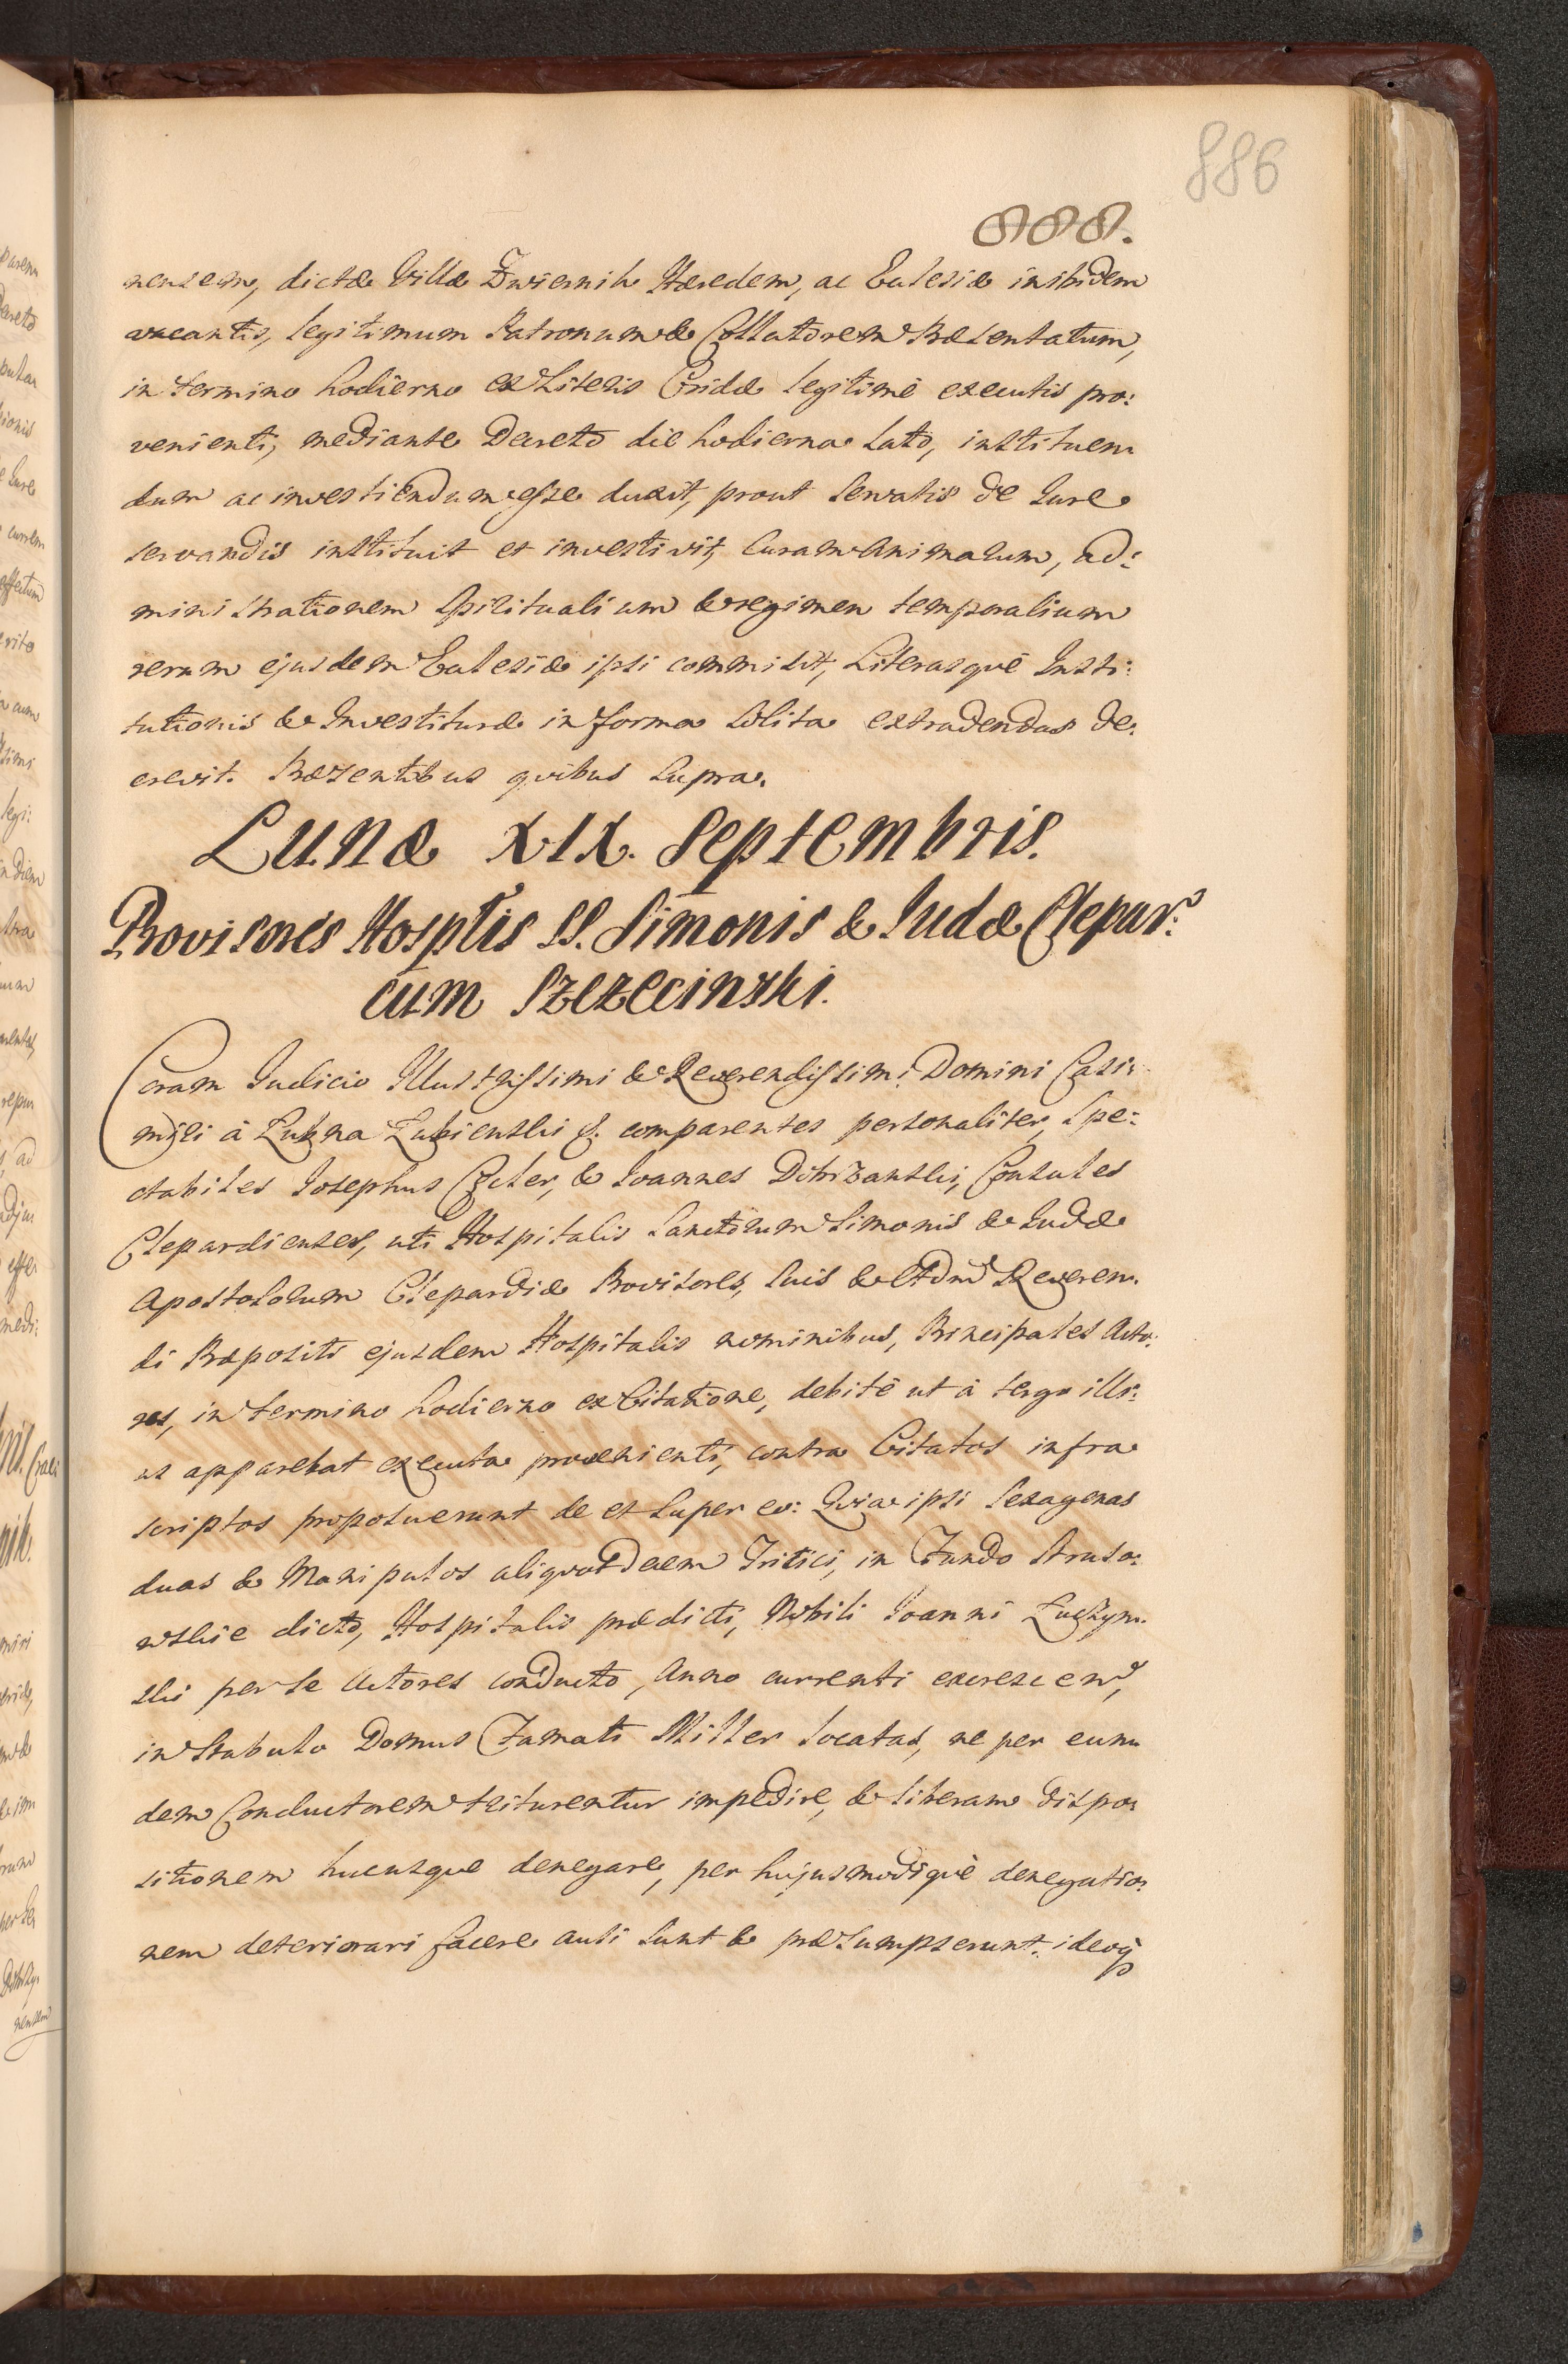 886
888.
nensem, dictæ Villæ Zwiernik Hæredem, ac Eclesiæ inibidem
vacantis, legitimum Patronum & Collatorem Præsentatum,
in termino hodierno ex Literis Cridæ legitimè executis pro:
venienti, mediante Decreto die hodierna lato, instituen
dum ac investiendum esse duxit, prout servatis de Iure
servandis instituit et investivit, Curam Animarum, ad:
ministrationem Spiritualium & regimen temporalium
rerum ejusdem Eclesiæ ipsi commisit, Literasquè Insti:
tutionis & Investituræ in forma solita extradendas de:
crevit. Præsentibus quibus supra.
Lunæ XIX. Septembris.
Provisores Hosptlis SS. Simonis & Iudæ Clepar:
cum Szczecinski.
Coram Iudicio Illustrissimi & Reverendissimi Domini Casi:
miri à Łubna Łubienski &. comparentes personaliter, Spe:
ctabiles Iosephus Czeter, & Ioannes Dobrzanski, Consules
Clepardienses, uti Hospitalis Sanctorum Simonis & Iudæ
Apostolorum Clepardiæ Provisores, suis & Adm Reveren
di Præpositi ejusdem Hospitalis nominibus, Principales Acto:
res, in termino hodierno ex Citatione, debitè ut à tergo illi:
us apparebat executa provenienti, contra Citatos infra
scriptos proposuerunt de et super eo: Quia ipsi sexagenas
duas & Manipulos aliquot decem Tritici, in Fundo Struso:
wskie dicto, Hospitalis prædicti, Nobili Ioanni Łuczyn
ski per se Actores conducto, Anno currenti excrescen,
in Stabulo Domus Famati Miller locatas, ne per eun
dem Conductorem triturentur impedire, & liberam dispo:
sitionem hucusque denegare, per hujusmodiquè denegatio:
nem deteriorari facere ausi sunt & præsumpserunt: ideoq